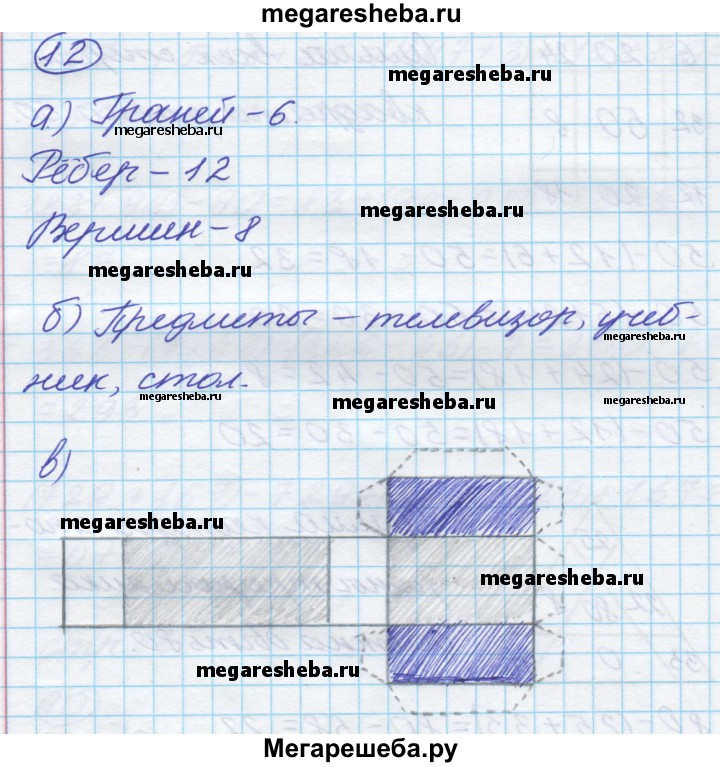 megaresheba.ru
12
megaresheba.ru
а) Граней – 6.
megaresheba.ru
Рёбер – 12
megaresheba.ru
Вершин – 8
megaresheba.ru
б) Предметы – телевизор, учеб-
megaresheba.ru
ник, стол.
megaresheba.ru
megaresheba.ru
megaresheba.ru
в)
megaresheba.ru
megaresheba.ru
megaresheba.ru
Мегарешеба.ру